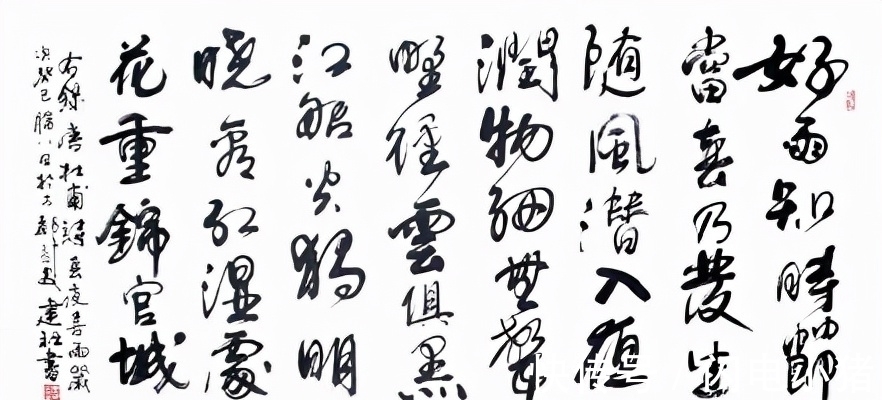 好雨知時節
當春乃發生
随風潛入夜
潤物細無聲
野徑雲俱黑
江船火獨明
晓看红濕處
花重錦官城
右錄唐杜甫詩春夜喜雨歲
次癸巳臘八日於古都